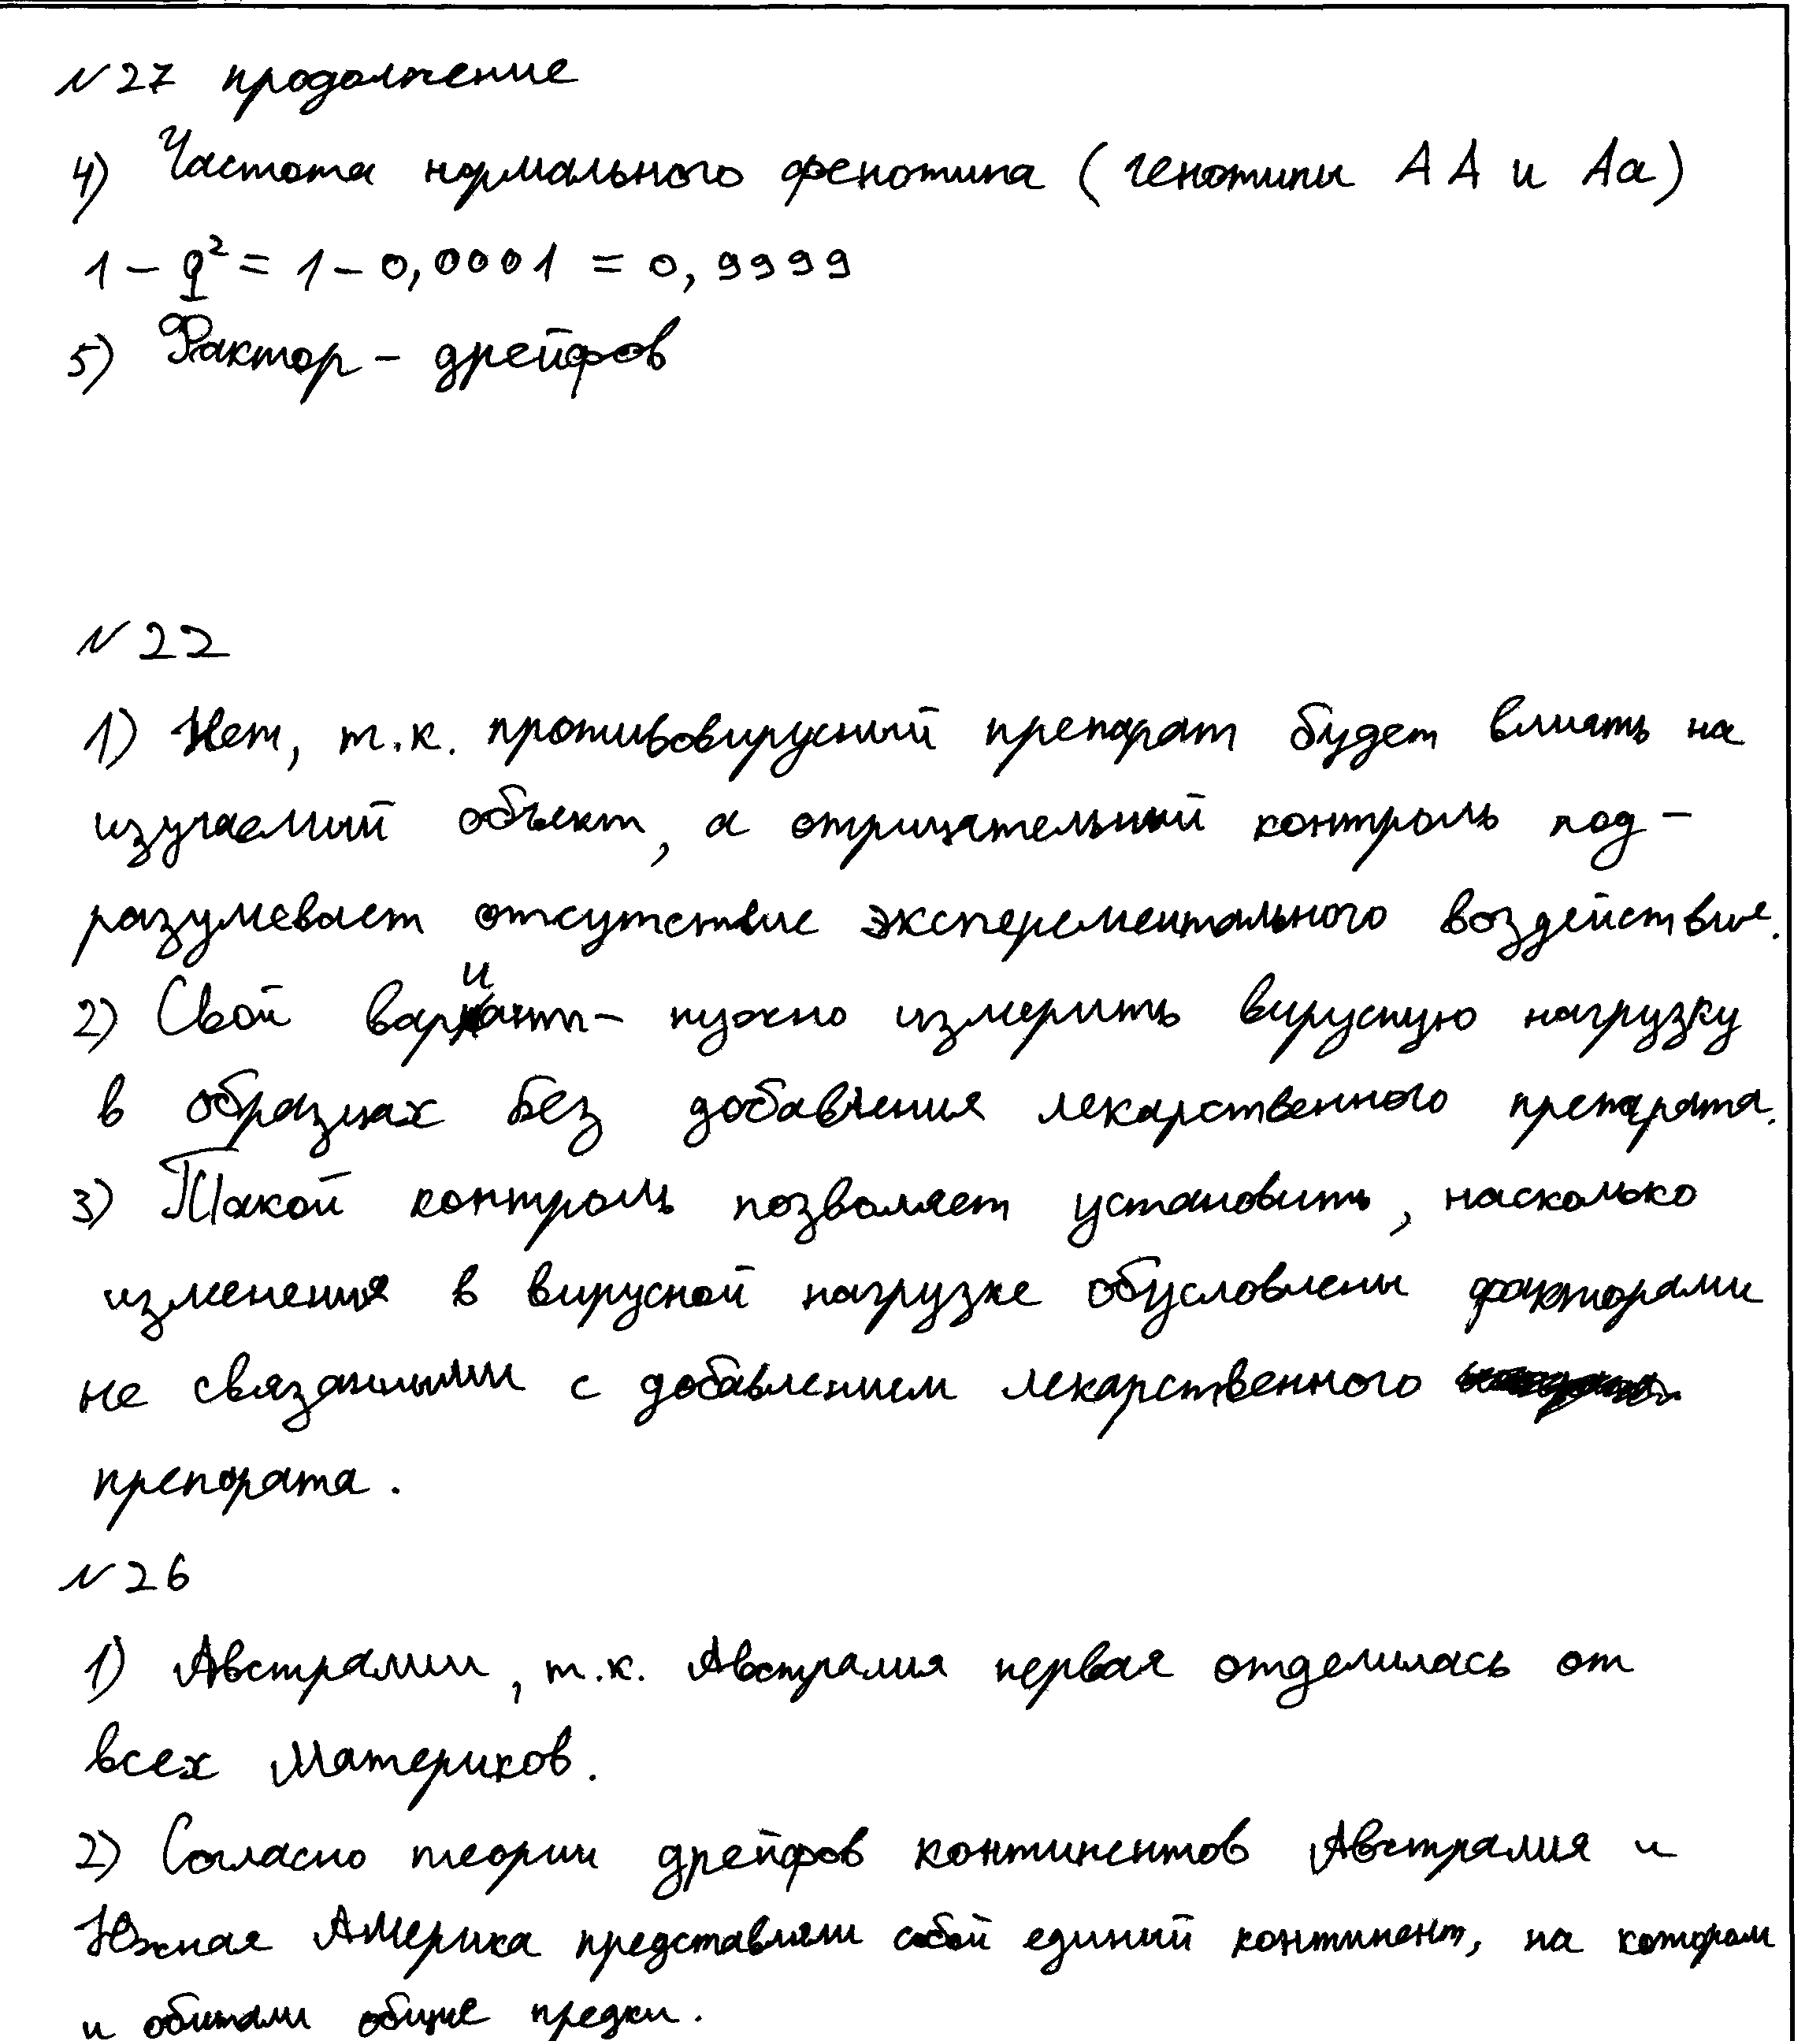 №27 продолжение
4) Частота нормального фенотипа (генотипы АА и Аа)
1 – q² = 1 – 0,0001 = 0,9999
5) Фактор – дрейфов
№22
1) Нет, т.к. противовирусный препарат будет влиять на
изучаемый объект, а отрицательный контроль под-
разумевает отсутствие эксперементального воздействие.
2) Свой варианты – нужно измерить вирусную нагрузку
в образцах без добавления лекарственного препарата.
3) Такой контроль позволяет установить, насколько
изменения в вирусной нагрузке обусловлены факторами
не связанными с добавлением лекарственного
препората.
№26
1) Австралии, т.к. Австралия первая отделилась от
всех материков.
2) Согласно теории дрейфов континентов Австралия и
Южная Америка представляли собой единый континент, на котором
и обитали общие предки.